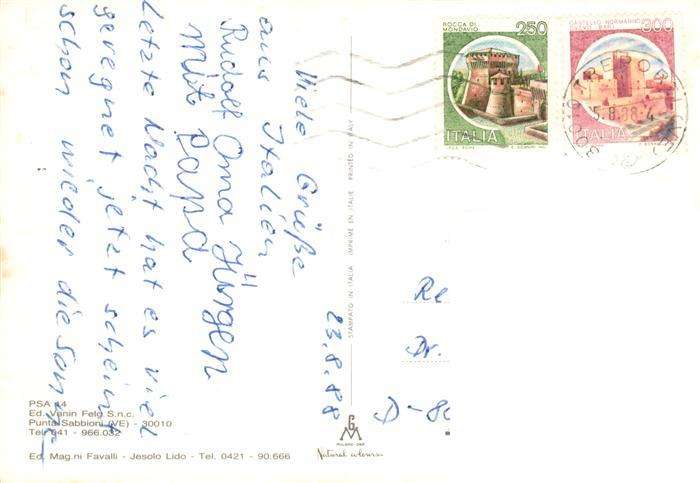 Viele Grüße
aus Italien
Rudolf Oma Jürgen
Mit Papa
Letzte Nacht hat es viel
geregnet jetzt scheint
schon wieder die Sonne
23.8.88
ROCCA DI
MONDAVIO
250
ITALIA
CASTELLO NORMANNO
300
ITALIA
5.8.88
STAMPATO IN ITALIA IMPRIME EN ITALIE PRINTED IN ITALY
Re
Dr.
D-8
PSA 14
Ed. Vanin Felg S.n.c.
Punta Sabbioni (VE) - 30010
Tel. 041 - 966.032
Ed. Mag.ni Favalli - Jesolo Lido - Tel. 0421 - 90.666
MILANO
Natural colours